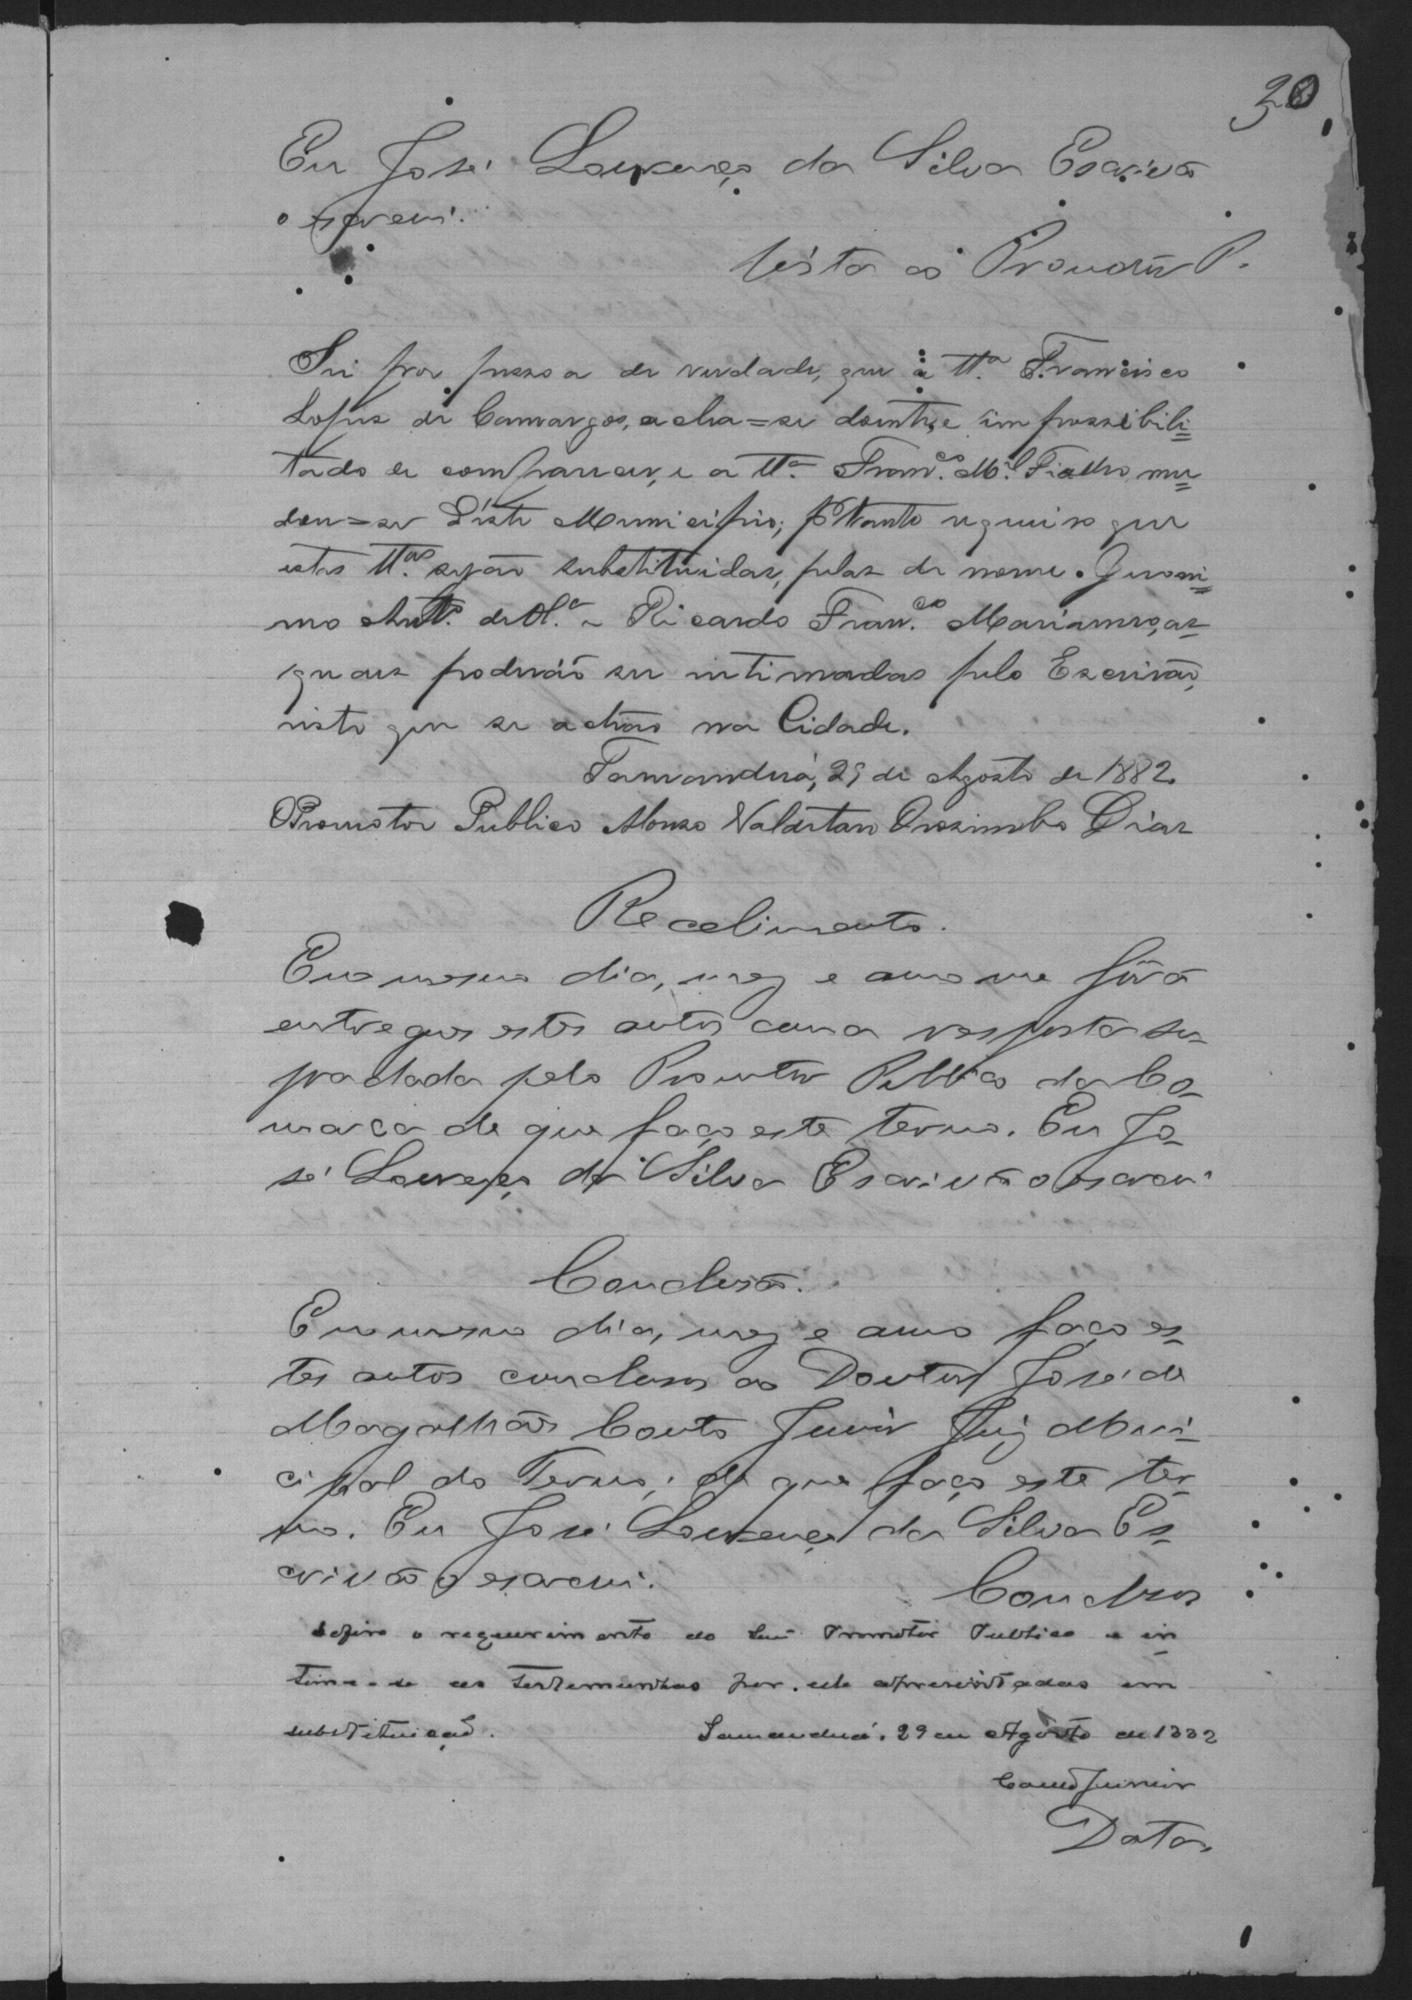 30
Eu José Lourenço da Silva Escrivão
o escrevi.
Vista ao Promotor P.
Sei por pessoa de verdade, que a tt.ª Francisco
Lopes de Camargos, acha=se doente, e impossibili=
tado de comparecer, e a tt.ª Fran.co M.el Fialho mu=
dou=se d'este Municipio; portanto requeiro que
estas tt.as sejão substituidas, pelas de nome. Geroni=
mo Ant.º de Al.ª e Ricardo Fran.co Marianno, as
quaes poderão ser intimadas pelo Escrivão,
visto que se achão na Cidade.
Tamanduá, 29 de Agosto de 1882.
O Promotor Publico Alonso Valdetaro Orozimbo Dias
Recebimento.
Em mesmo dia, mez e anno me forão
entregues estes autos com a resposta su-
pra dada pelo Promotor Publico da Co-
marca de que faço este termo. Eu Jo-
sé Lourenço da Silva Escrivão o escrevi
Conclusão.
Em mesmo dia, mez e anno faço es-
tes autos conclusos ao Doutor José de
Magalhães Couto Junior Juiz Muni-
cipal do Termo; de que faço este ter-
mo. Eu José Lourenço da Silva Es-
crivão o escrevi.
Conclusos
Defiro o requerimento do Snr Promotor Publico e in
time-se as testemunhas por elle apresentadas em
substituição. Tamanduá, 29 de Agosto de 1882
Couto Junior
Data